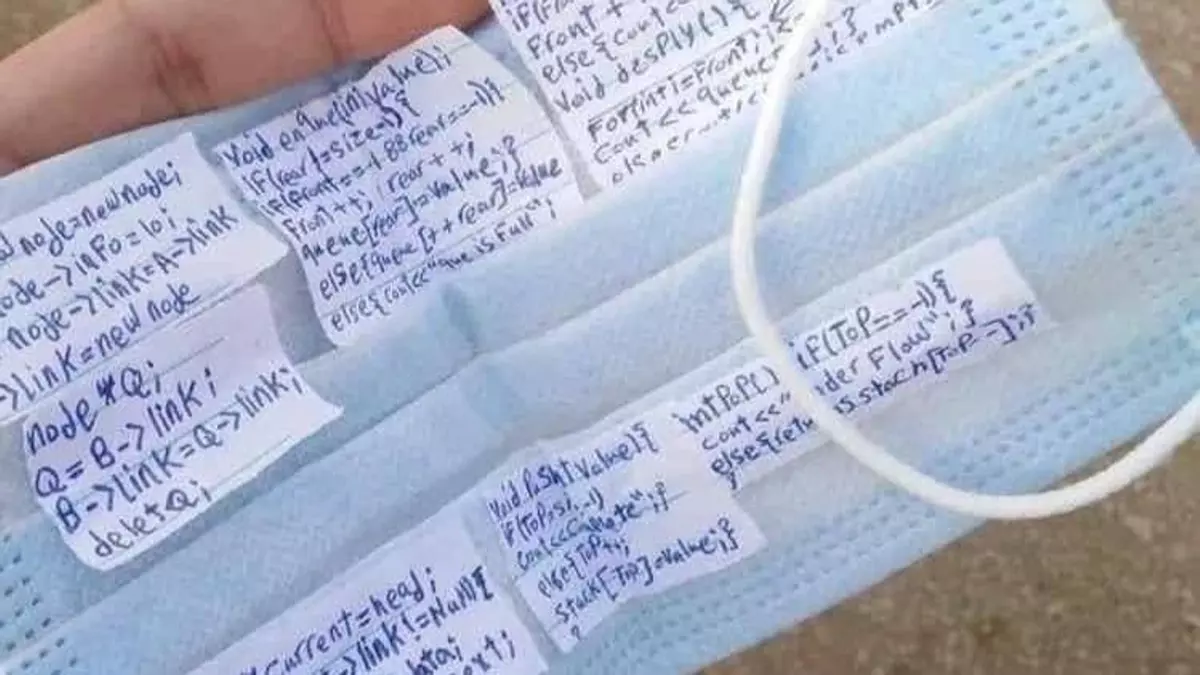 node=newnode;
node->info=10;
node->link=A->link
->link=newnode
node *Q;
Q=B->link;
B->link=Q->link;
deletQ;
Void enque(int value);
if(rear!=size-1){
if(front==-1 88 rear==-1){
Front++; rear++;
queue[rear]=value;}
else{queue[++rear]=value
else{cout<<"que is Full";
Front +
else{cout<<
Void desply(){
For(int i=Front;i<
Cout<<queue
int PoP() if(ToP==-1){
cout<<" nder Flow";}
else{retu stach[ToP--];}
Void Push(value){
if(ToP
Cout<<
else{ToP++;
stack[ToP]=value;}
}
Current=head;
->link!=Null{
data;
ext;